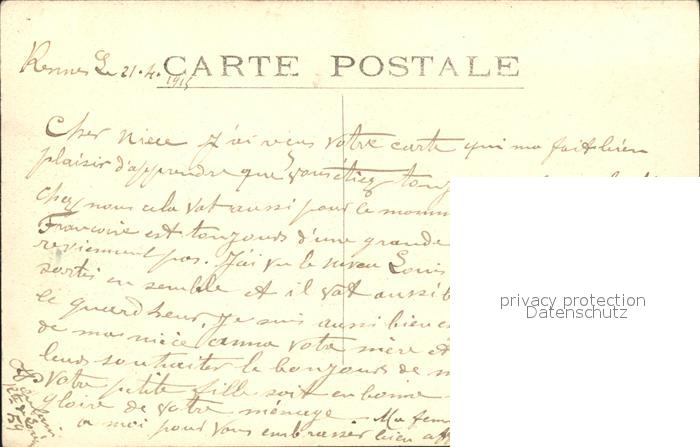 Rennes Le 21.4.1915
CARTE POSTALE
Cher niece J'ai recus votre carte qui ma fait bien
plaisir d'apprendre que vous étiez touj
chez nous cela vat aussi pour le mom
Francoise est toujours d'une grande
reviennent pas. J'ai vu le neveu Louis
sortis en semble et il vat aussi b
le quard heur, Je suis aussi bien c
de ma nièce anna votre mère et
leurs souhaiter le bonjours de m
Votre petite fille soit en bonne
gloire de votre ménage Ma fem
a moi pour vous embrasser bien aff
privacy protection
Datenschutz